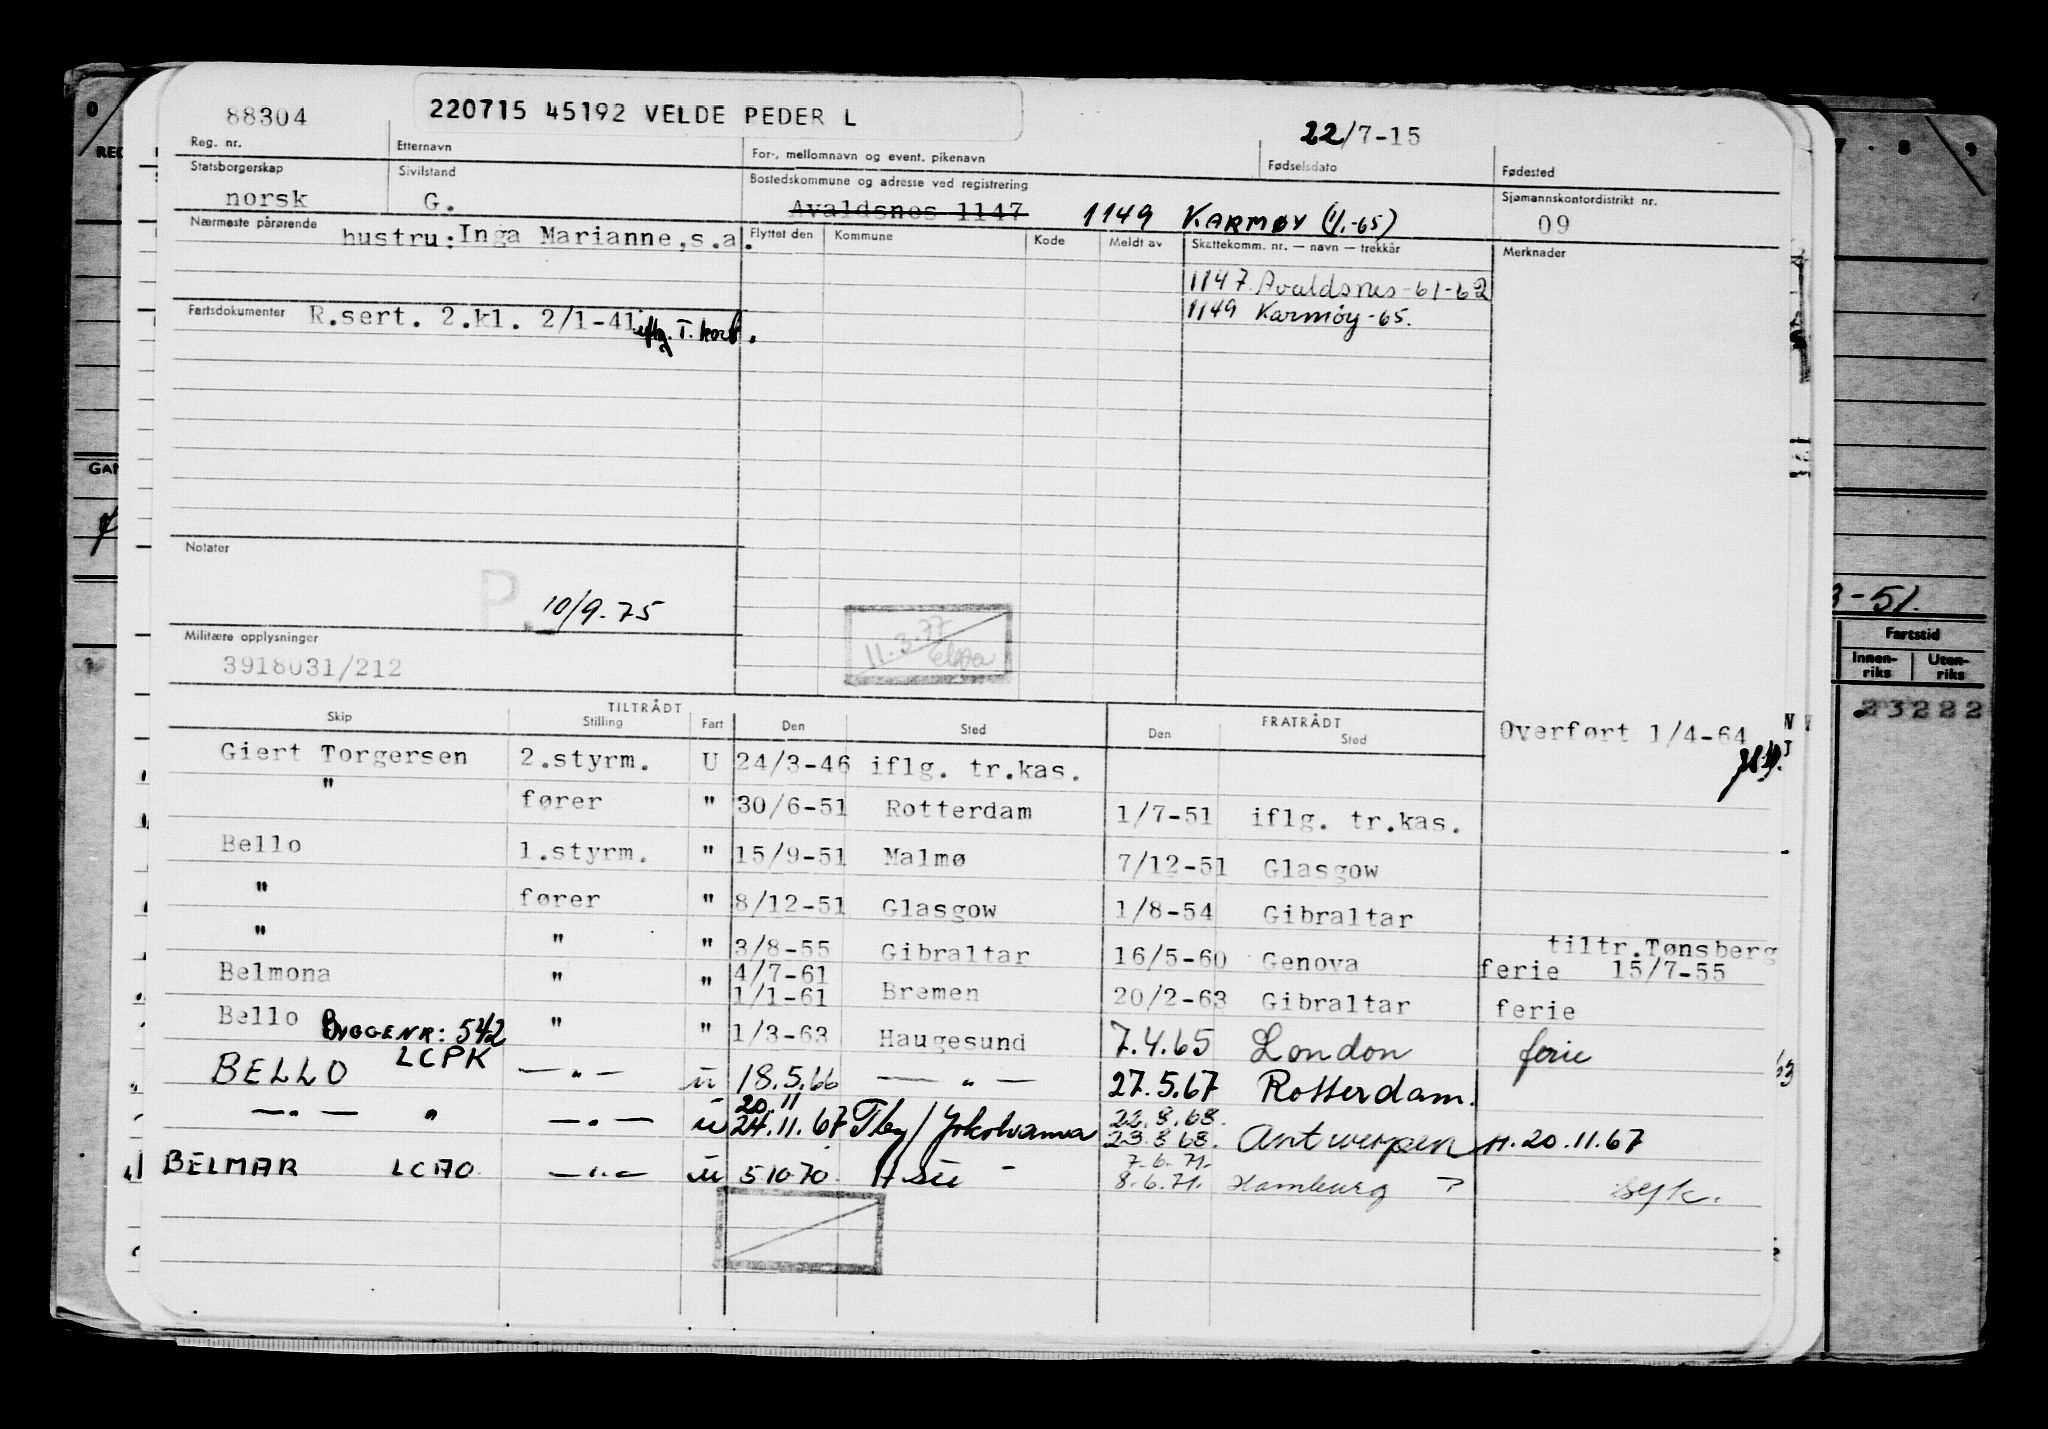 88304 220715 45192 VELDE PEDER L 22/7-15
Reg. nr. Etternavn For-, mellomnavn og event. pikenavn Fødselsdato Fødested
Statsborgerskap Sivilstand Bostedskommune og adresse ved registrering Sjømannskontordistrikt nr.
norsk G. Avaldsnes 1147 1149 KARMØY (1/1-65) 09
Nærmeste pårørende hustru: Inga Marianne, s.a. Flyttet den Kommune Kode Meldt av Skattekomm. nr. — navn — trekkår Merknader
1147 Avaldsnes-61-62
1149 Karmøy-65.
Fartsdokumenter R.sert. 2.kl. 2/1-41 iflg. T. kort.
Notater
P. 10/9.75
11.3.77
Militære opplysninger
3918031/212
TILTRÅDT FRATRÅDT
Skip Stilling Fart Den Sted Den Sted
Overført 1/4-64
Giert Torgersen 2.styrm. U 24/3-46 iflg. tr.kas.
" fører " 30/6-51 Rotterdam 1/7-51 iflg. tr.kas.
Bello 1.styrm. " 15/9-51 Malmø 7/12-51 Glasgow
" fører " 8/12-51 Glasgow 1/8-54 Gibraltar
" " " 3/8-55 Gibraltar 16/5-60 Genova tiltr.Tønsberg
ferie 15/7-55
Belmona " " 4/7-61
1/1-61 Bremen 20/2-63 Gibraltar ferie
Bello BYGGENR: 542 " " 1/3-63 Haugesund 7.4.65 London ferie
BELLO LCPK —"— u 18.5.66 —"— 27.5.67 Rotterdam.
—"— " —"— u 20.11
24.11.67 Fly/Yokohama 22.8.68.
23.8.68. Antwerpen H.20.11.67
BELMAR LCAO —"— u 5 10 70 H su 7.6.71.
8.6.71. Hamburg ? syk.
3-51.
Fartstid
Innen-
riks Uten-
riks
23222